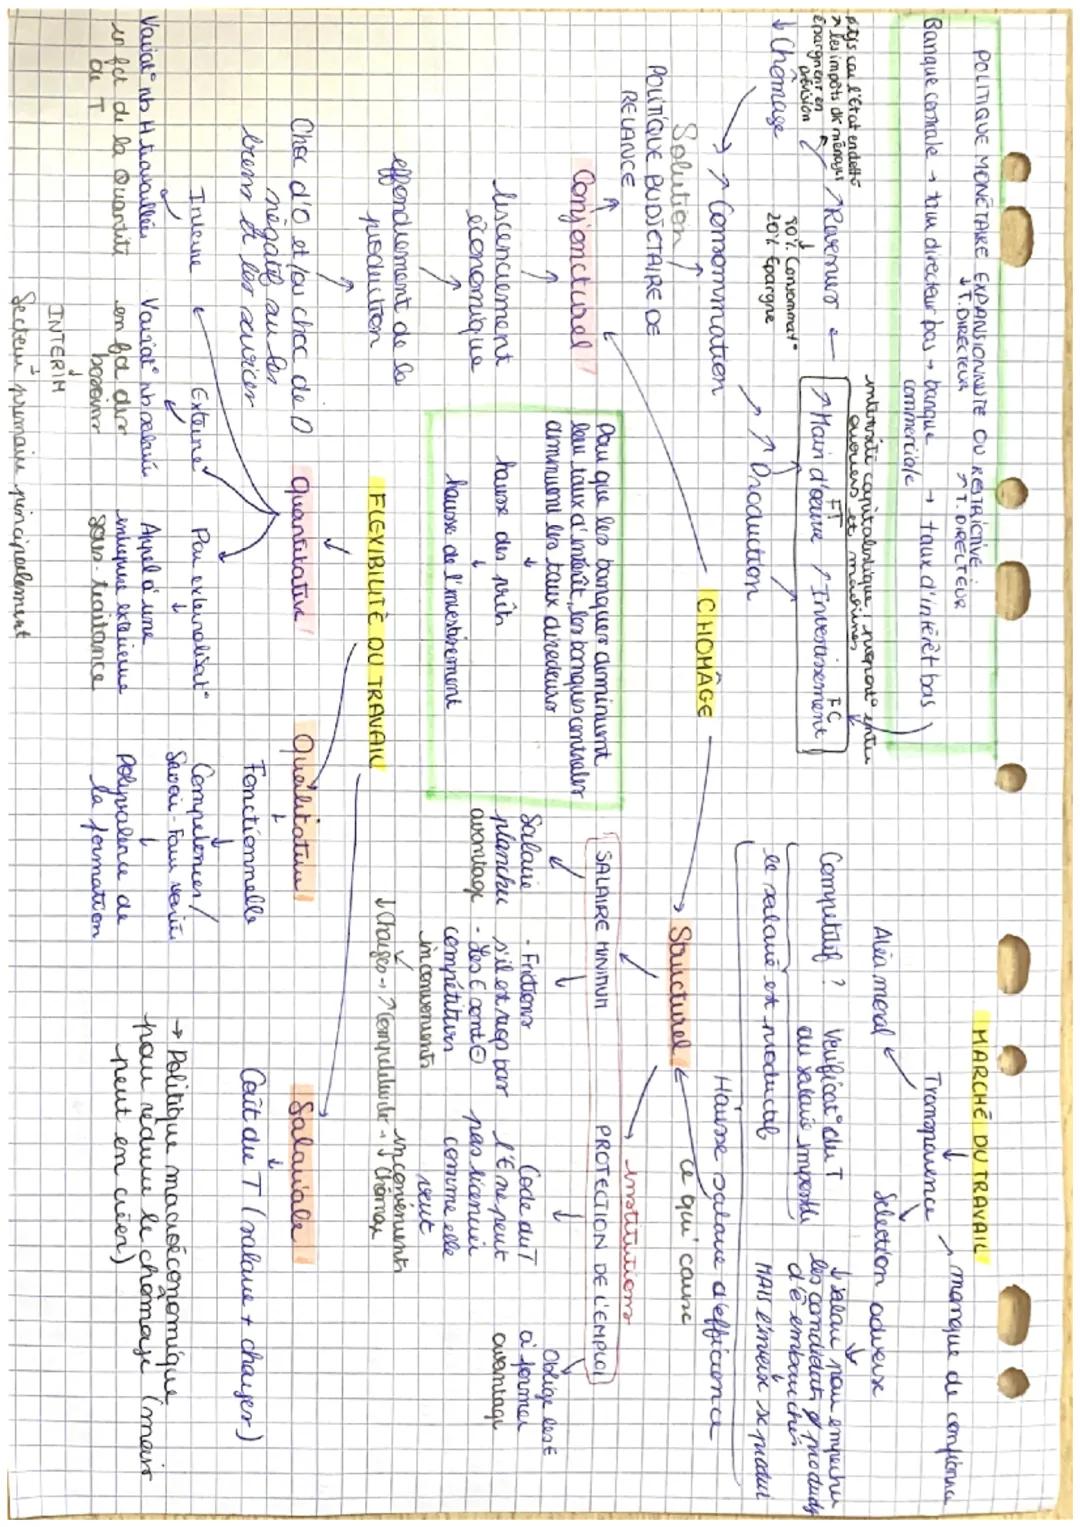 POLITIQUE MONÉTAIRE EXPANSIONNISTE OU RESTRICTIVE :
↓T. DIRECTEUR
↗T. DIRECTEUR
Banque centrale → taux directeur bas → banque commerciale → taux d'intérêt bas
pays car l'État endetté
↗ les impôts dc ménages
épargnent en
prévision
↗ Revenus ←
80% Consommat°
20% Epargne
↓ Chômage
intensité capitalistique, rapport° entre
ouvriers et machines
FT
FC
↗ Main d'œuvre ↗ Investissement
→ ↗ Consommation
↗ Production
Solution
POLITIQUE BUDGÉTAIRE DE
RELANCE
CHOMÂGE
Conjoncturel
licenciement
économique
effondrement de la
production
Choc d'O et/ou choc de D
négatif au les
biens et les services
Pour que les banques diminuent
leu taux d'intérêt, les banques centrales
diminuent les taux directeurs
↓
hausse des prêts
↓
hausse de l'investissement
MARCHÉ DU TRAVAIL
Transparence
manque de confiance
Aléa moral
Sélection adverse
Computitif ?
Vérificat° du T
au salarié impossible
↓ salaire pour empêcher
les candidats ø produdifs
d'ê embauchés
le salarié est productif
MAIS l'inverse se produit
Hausse salaire d'efficience
Structurel
ce qui cause
institutions
SALAIRE MINIMUM
PROTECTION DE L'EMPLOI
Salaire
plancher
avantage
- Frictions
s'il est trop bas
- Les E sont ⊖
compétitives
inconvenients
Code du T
l'E ne peut
pas licencier
comme elle
veut
inconvénients
Oblige les E
à former
avantage
↓ Charges → ↗ Compétitivité → ↓ chômage
FLEXIBILITÉ DU TRAVAIL
Quantitative
Qualitative
Salariale
Interne
Externe
Par externalisat°
Variat° nb H travaillées
en fct de la Quantité
de T
Variat° nb salarié
en fct des
besoins
INTERIM
Secteur primaire principalement
Appel à une
entreprise extérieure
sous-traitance
Fonctionnelle
Compétences/
Savoir-Faire variés
Polyvalence de
la formation
Coût du T (salaire + charges)
→ Politique macroéconomique
pour réduire le chômage (mais
peut en créer)